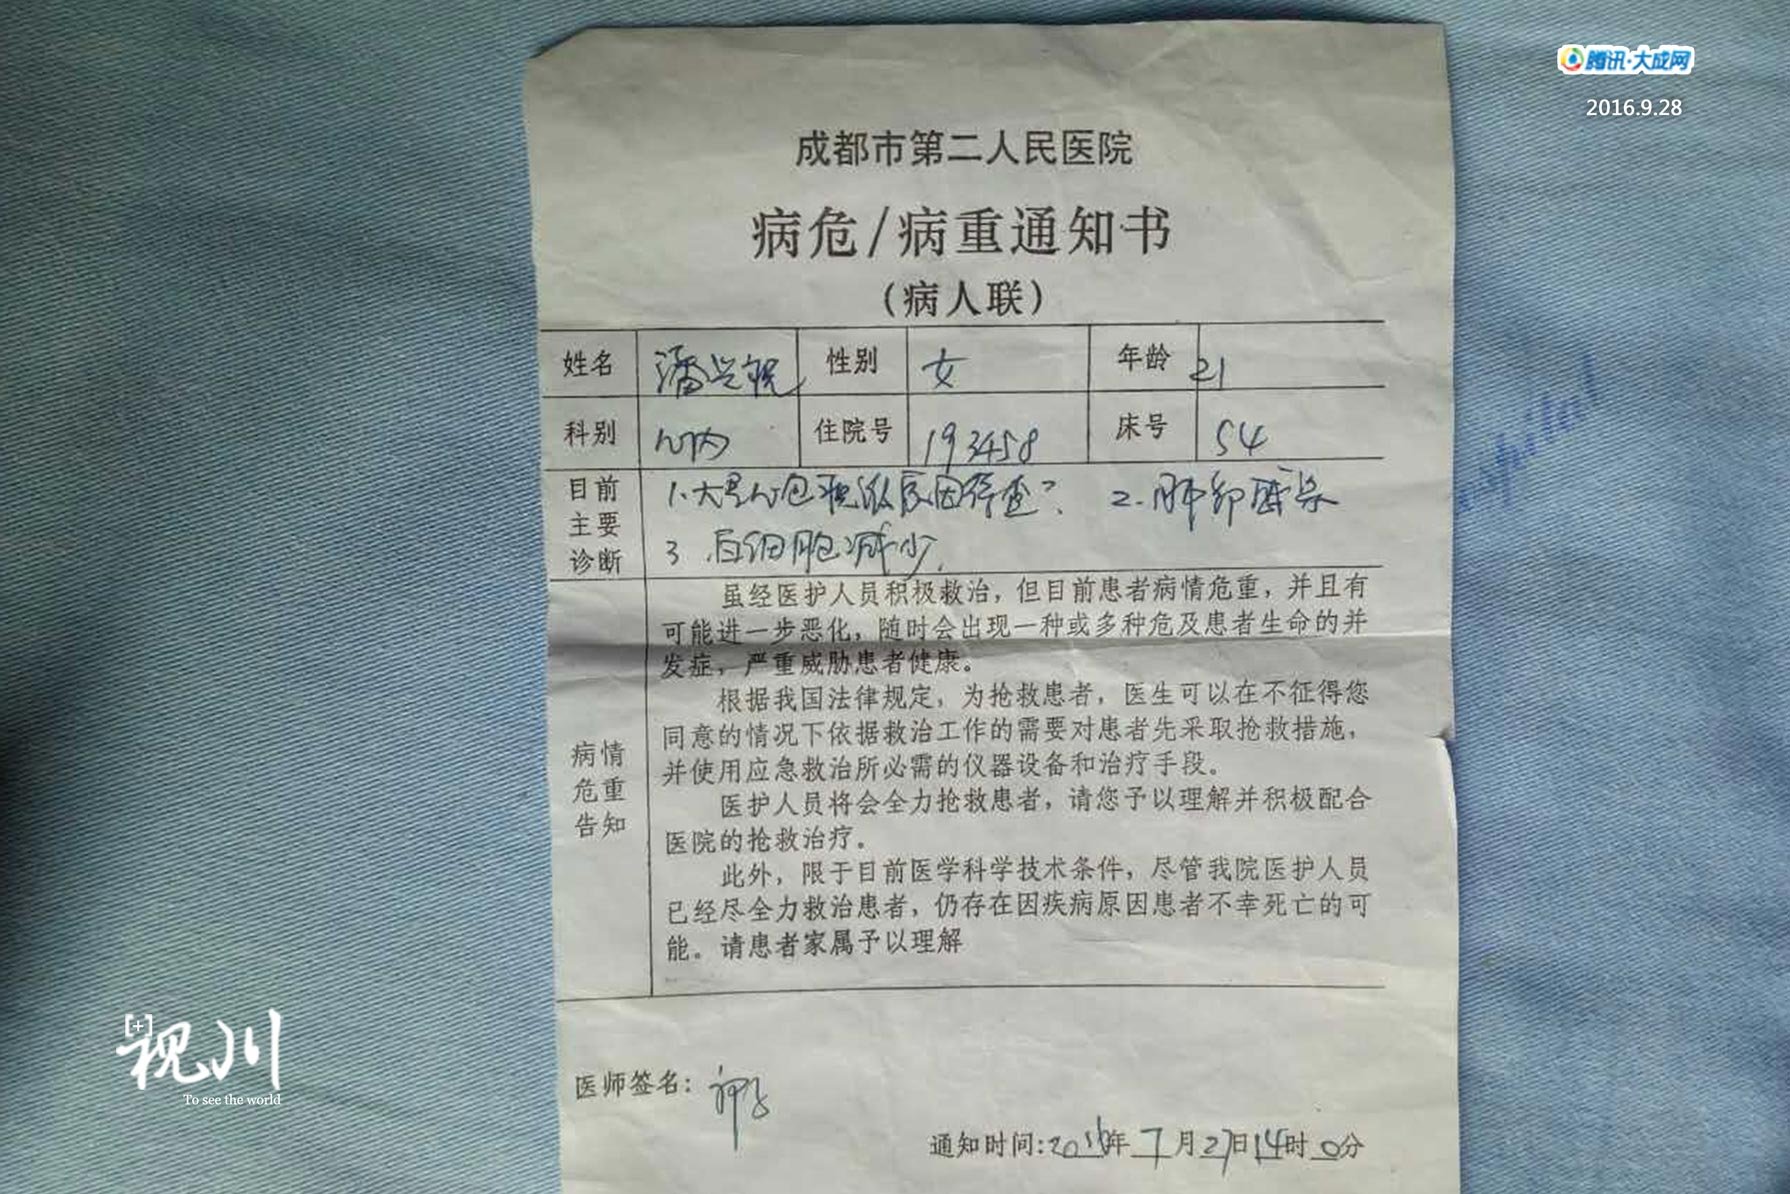 腾讯·大成网
2016.9.28
成都市第二人民医院
病危/病重通知书
（病人联）
姓名 潘兴 性别 女 年龄 21
科别 心内 住院号 193458 床号 54
目前主要诊断
1.大量心包积液原因待查? 2.肺部感染
3.白细胞减少.
病情危重告知
虽经医护人员积极救治，但目前患者病情危重，并且有
可能进一步恶化，随时会出现一种或多种危及患者生命的并
发症，严重威胁患者健康。
根据我国法律规定，为抢救患者，医生可以在不征得您
同意的情况下依据救治工作的需要对患者先采取抢救措施，
并使用应急救治所必需的仪器设备和治疗手段。
医护人员将会全力抢救患者，请您予以理解并积极配合
医院的抢救治疗。
此外，限于目前医学科学技术条件，尽管我院医护人员
已经尽全力救治患者，仍存在因疾病原因患者不幸死亡的可
能。请患者家属予以理解
医师签名：
通知时间：2016年7月27日14时0分
[+]视川
To see the world